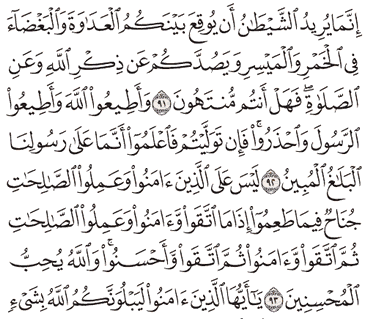 إِنَّمَا يُرِيدُ ٱلشَّيْطَٰنُ أَن يُوقِعَ بَيْنَكُمُ ٱلْعَدَٰوَةَ وَٱلْبَغْضَآءَ
فِى ٱلْخَمْرِ وَٱلْمَيْسِرِ وَيَصُدَّكُمْ عَن ذِكْرِ ٱللَّهِ وَعَنِ
ٱلصَّلَوٰةِ ۖ فَهَلْ أَنتُم مُّنتَهُونَ ٩١ وَأَطِيعُوا۟ ٱللَّهَ وَأَطِيعُوا۟
ٱلرَّسُولَ وَٱحْذَرُوا۟ ۚ فَإِن تَوَلَّيْتُمْ فَٱعْلَمُوٓا۟ أَنَّمَا عَلَىٰ رَسُولِنَا
ٱلْبَلَٰغُ ٱلْمُبِينُ ٩٢ لَيْسَ عَلَى ٱلَّذِينَ ءَامَنُوا۟ وَعَمِلُوا۟ ٱلصَّٰلِحَٰتِ
جُنَاحٌ فِيمَا طَعِمُوٓا۟ إِذَا مَا ٱتَّقَوا۟ وَّءَامَنُوا۟ وَعَمِلُوا۟ ٱلصَّٰلِحَٰتِ
ثُمَّ ٱتَّقَوا۟ وَّءَامَنُوا۟ ثُمَّ ٱتَّقَوا۟ وَّأَحْسَنُوا۟ ۗ وَٱللَّهُ يُحِبُّ
ٱلْمُحْسِنِينَ ٩٣ يَٰٓأَيُّهَا ٱلَّذِينَ ءَامَنُوا۟ لَيَبْلُوَنَّكُمُ ٱللَّهُ بِشَىْءٍ